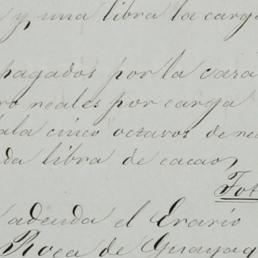 y, una libra la carga
pagados por la vara
ro reales por carga
ala cinco octavos de re
da libra de cacao,
Tot
adeuda el Erario
Roca de Guayaq